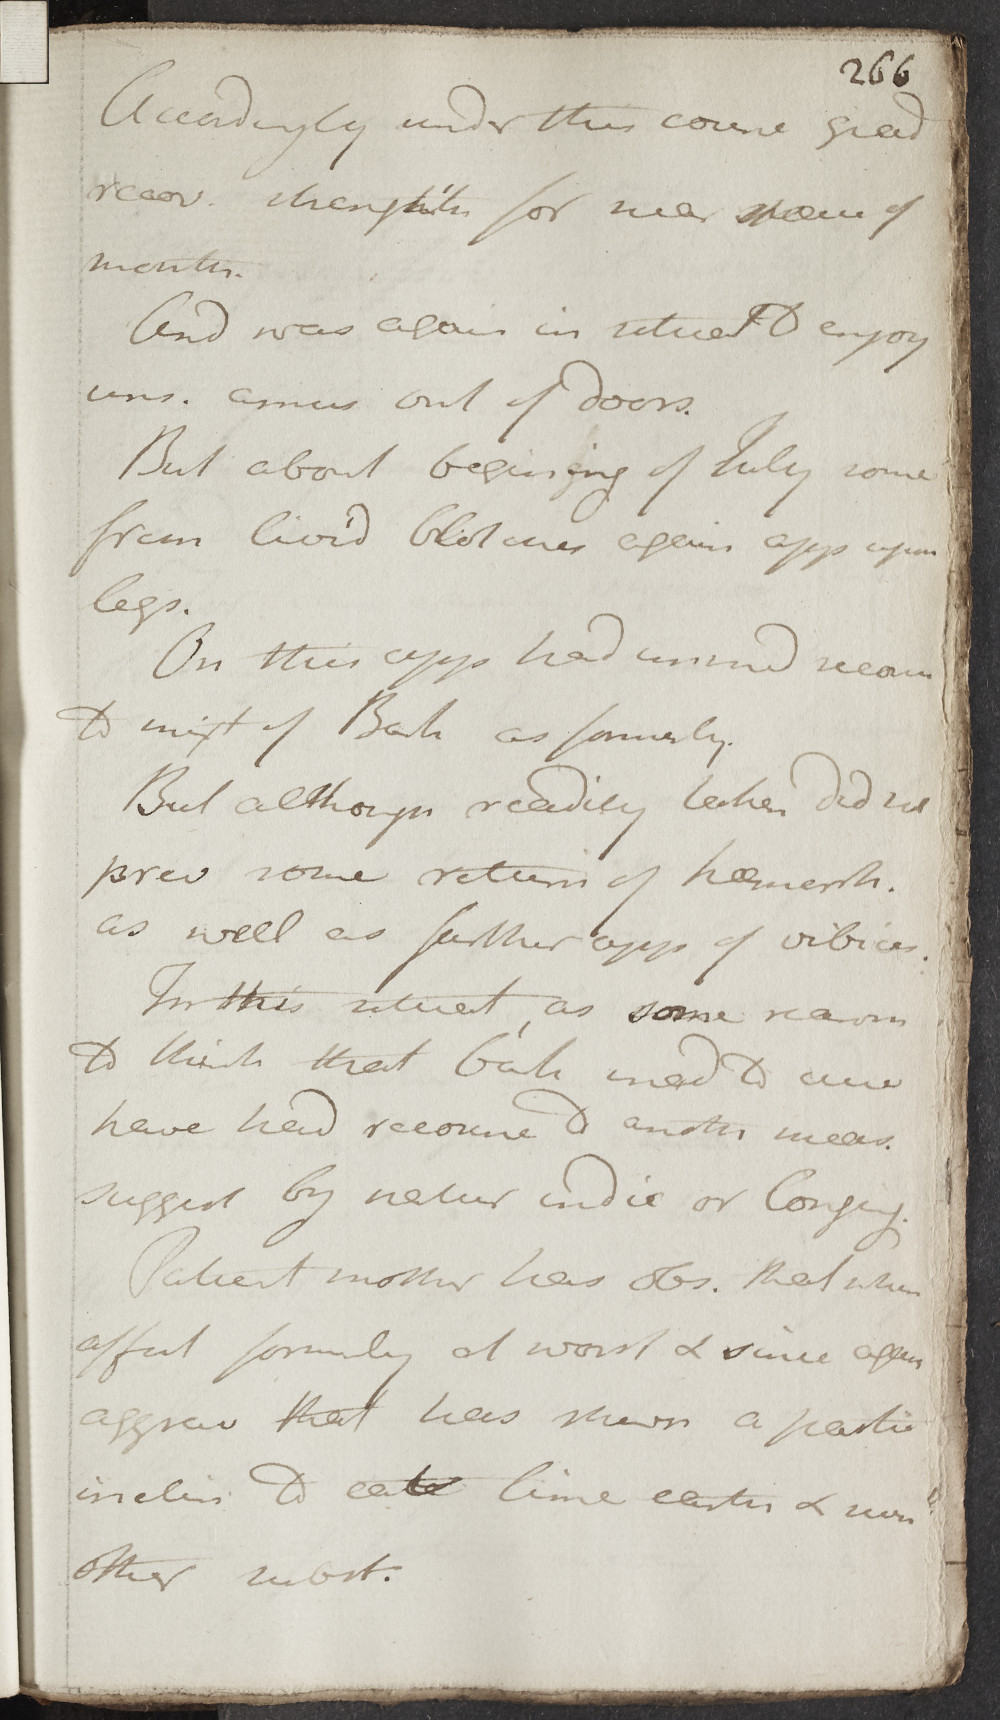 266
Accordingly under this course grad
recov. strength for near space of
months.
And was again in situat to enjoy
uns. amus out of doors.
But about beginning of July some
from livid blotches again app upon
legs.
On this app had immed recour
to mixt of Bark as formerly.
But although readily taken did not
prev some return of hæmorrh.
as well as further app of vibices.
In this situat, as some reason
to think that bark used to
have had recourse to anothr meas.
suggest by natur indic or longing.
Patient mother has obs. that when
affect formerly at worst & since again
aggrav that has shewn a partic
inclin to eat lime earth & such
other subst.